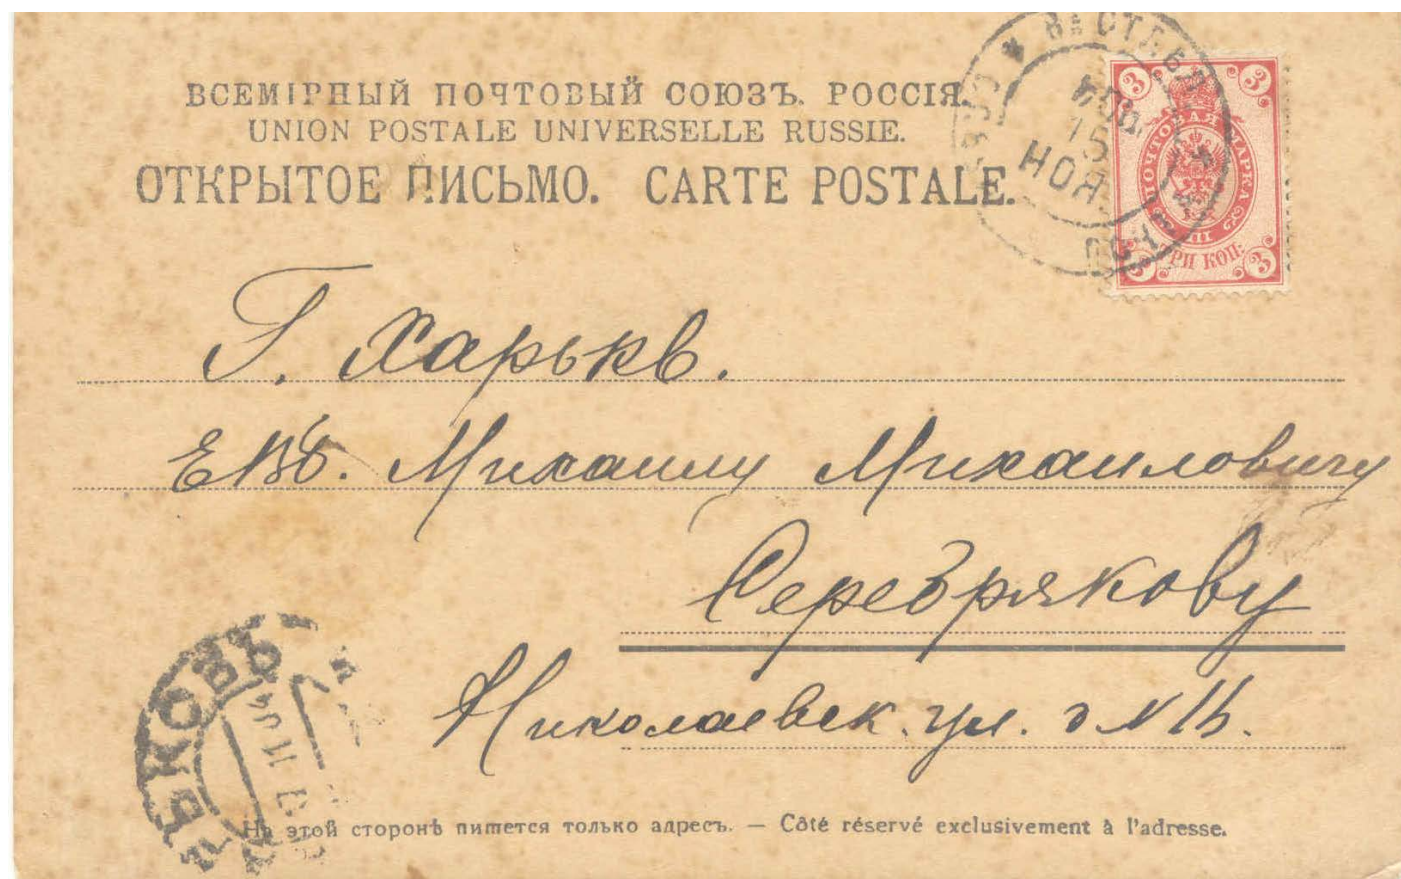 ВСЕМІРНЫЙ ПОЧТОВЫЙ СОЮЗЪ. РОССІЯ.
UNION POSTALE UNIVERSELLE RUSSIE.
ОТКРЫТОЕ ПИСЬМО. CARTE POSTALE.
3 3
ПОЧТОВАЯ МАРКА
ТРИ КОП:
3 3
15
НОЯ
Г. Харьков.
ЕВб. Михаилу Михаиловичу
Серебрякову
Николаевск. ул. д №
ЬКОВЪ
11 04
На этой сторонѣ пишется только адресъ. — Côté réservé exclusivement à l'adresse.